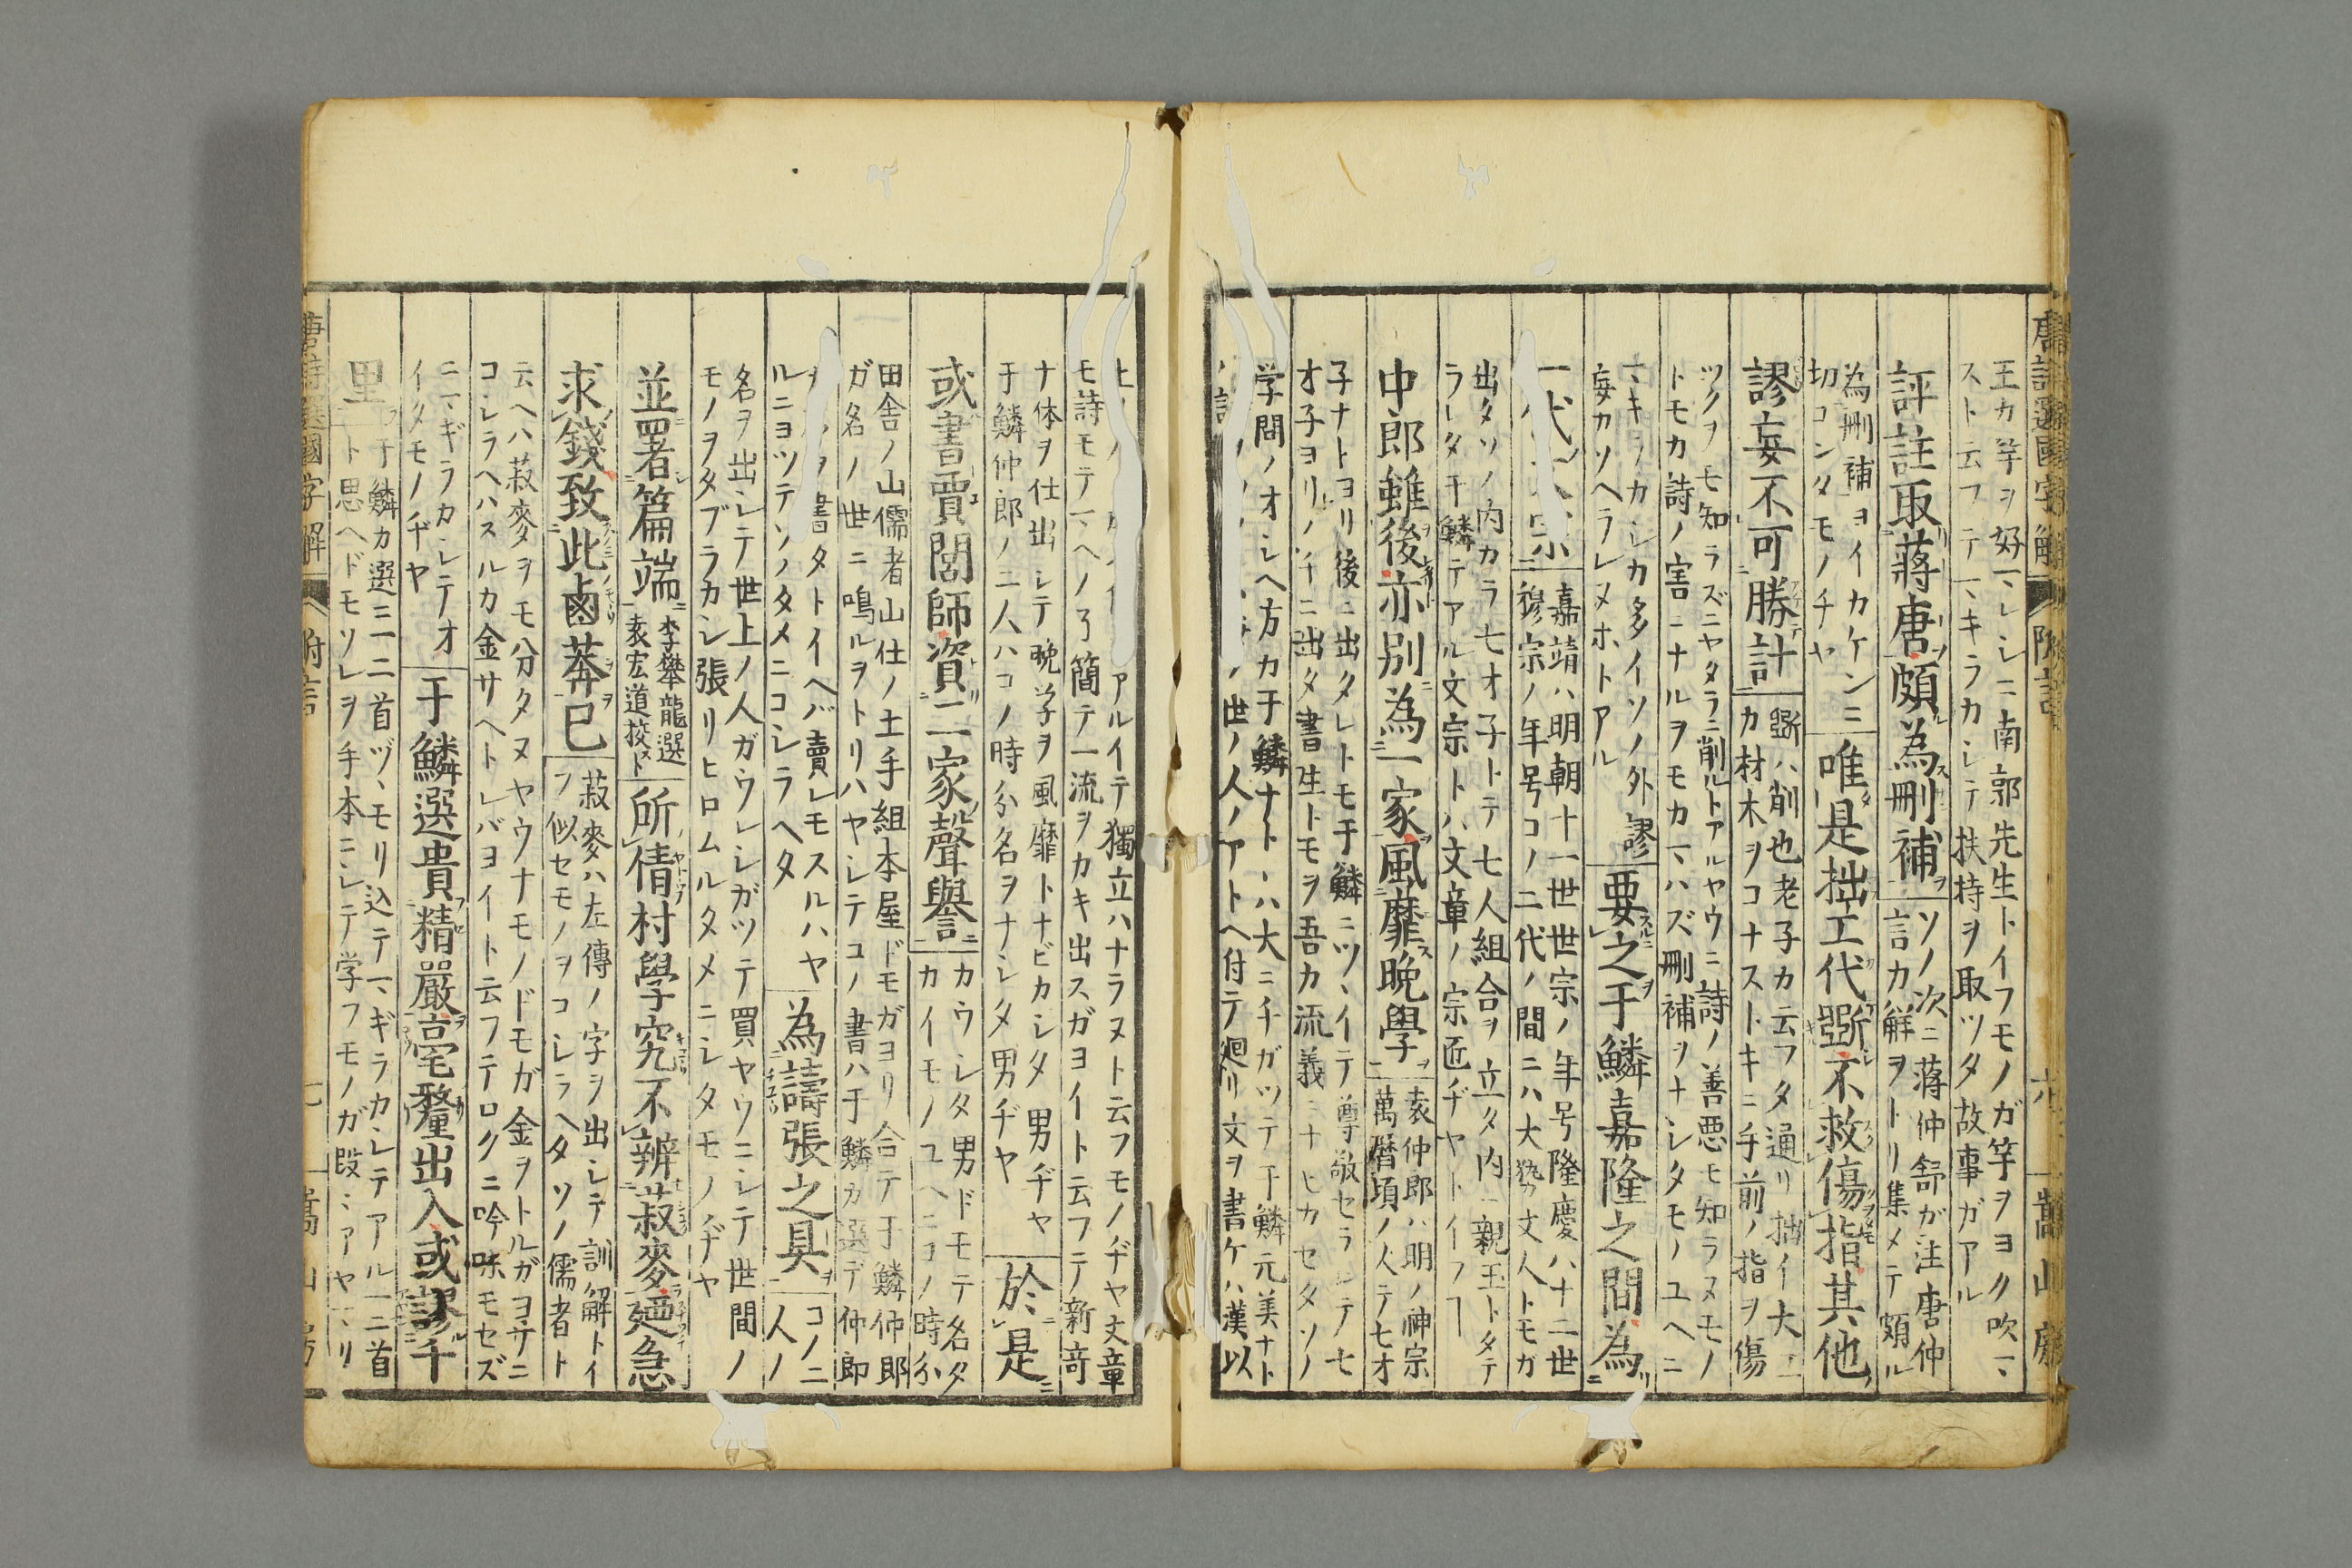 唐詩選國字解 附言 六 嵩山房
王カ竽ヲ好マレシニ南郭先生トイフモノガ竽ヲヨク吹マ
スト云フテマキラカシテ扶持ヲ取ツタ故事ガアル
評註取蔣唐頗為刪補
ソノ次ニ蒋仲舒が注唐仲
言カ解ヲトリ集メテ頗ル
為刪補ヲイカケンニ
切コンタモノチヤ
唯是拙工代斲不救傷指其他
謬妄不可勝計
斲ハ削也老子カ云フタ通リ拙イ大工
カ材木ヲコナストキニ手前ノ指ヲ傷
ツクノモ知ラズニヤタラニ削ルトアルヤウニ詩ノ善悪モ知ラヌモノ
トモカ詩ノ害ニナルヲモカマハズ刪補ヲナシタモノユヘニ
マキラカシカ多イソノ外謬
妄カソヘラレヌホトアル
要之于鱗嘉隆之間為
一代
宗
嘉靖ハ明朝十一世世宗ノ年号隆慶ハ十二世
穆宗ノ年号コノ二代ノ間ニハ大勢文人トモガ
出タソノ内カラ七才子トテ七人組合ヲ立タ内一親玉トタテ
ラレタ于鱗テアル文宗トハ文章ノ宗匠ヂヤトイフヿ
中郎雖後亦別為一家風靡晩學
袁仲郎ハ明ノ神宗
萬暦頃ノ人テ七才
子ナトヨリ後ニ出タレトモ于鱗ニツヽイテ尊敬セラレテ七
才子ヨリノチニ出タ書生トモヲ吾カ流義ニナヒカセタソノ
学問ノオシヘ方カ于鱗ナトヽハ大ニチガツテ于鱗元美ナト
ノ世ノ人ノアトヘ付テ廻リ文ヲ書ケハ漢以
アルイテ獨立ハナラヌト云フモノヂヤ文章
モ詩モテマヘノ了簡テ一流ヲカキ出スガヨイト云フテ新竒
ナ体ヲ仕出シテ晩学ヲ風靡トナビカシタ男ヂヤ
于鱗仲郎ノ二人ハコノ時分名ヲナシタ男ヂヤ
於是
或書賈閭師資二家聲譽
カウシタ男ドモテ名タ
カイモノユヘニコノ時分
田舎ノ山儒者山仕ノ土手組本屋ドモガヨリ合テ于鱗仲郎
ガ名ノ世ニ鳴ルヲトリハヤシテコノ書ハ于鱗カ選デ仲郎
書タトイヘバ賣レモスルハヤ
ルニヨツテソノタメニコシラヘタ
為譸張之具
コノ二
人ノ
名ヲ出シテ世上ノ人ガウレシガツテ買ヤウニシテ世間ノ
モノヲタブラカシ張リヒロムルタメニシタモノヂヤ
並署篇端
李攀龍選
袁宏道挍ト
所倩村學究不辨菽麥廼急
求錢致此鹵莽已
菽麥ハ左傳ノ字ヲ出シテ訓解トイ
フ似セモノヲコシラヘタソノ儒者ト
云ヘハ菽麥ヲモ分タヌヤウナモノドモガ金ヲトルガヨサニ
コシラヘハスルカ金サヘトレバヨイト云フテロクニ吟味モセズ
ニマギラカシテオ
イタモノヂヤ
于鱗選貴精嚴毫釐出入或謬千
里
于鱗カ選ニ一二首ヅヽモリ込テマギラカシテアル一二首
ト思ヘドモソレヲ手本ニシテ学フモノガ段々アヤマリ
唐詩選國字解 附言 七 嵩山房